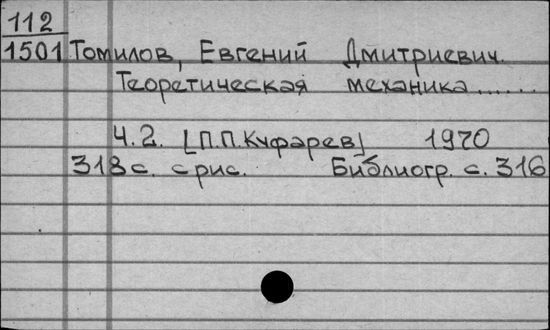 112
1501 Томилов, Евгений Дмитриевич.
Теоретическая механика......
Ч.2. [П.П.Куфарев] 1970
318 с. с рис. Библиогр. с. 316